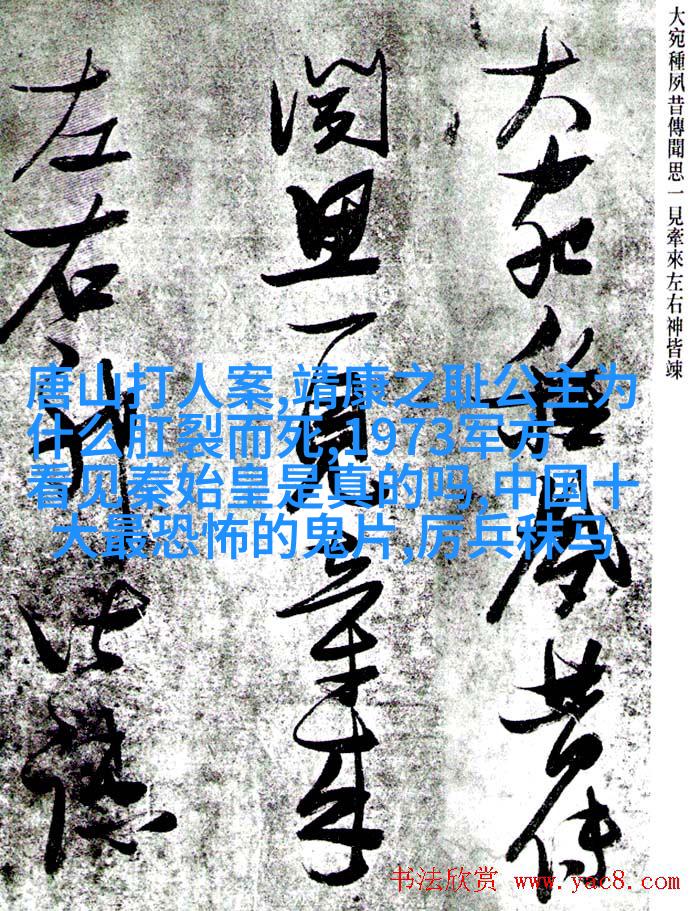 大宛種夙昔傳聞思一見牽來左右神皆竦
大宛種夙昔傳
聞思一見牽来
左右神皆竦
唐山打人案,靖康之耻公主为
什么肛裂而死,1973军方
看见秦始皇是真的吗,中国十
大最恐怖的鬼片,厉兵秣马
书法欣赏 www.yac8.com